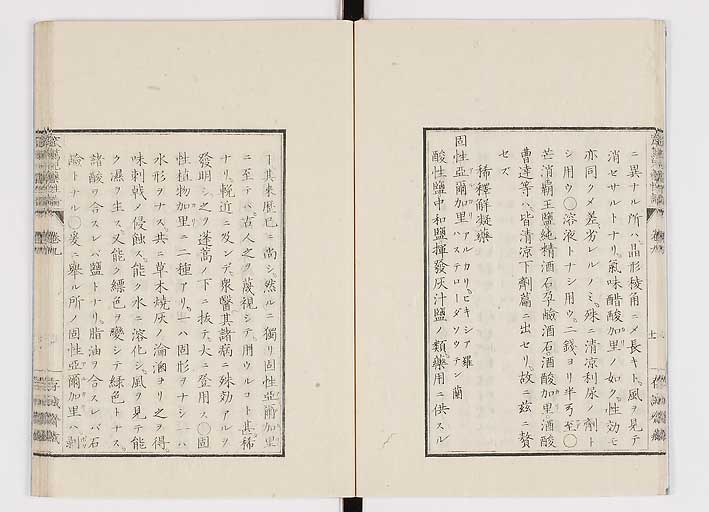 ニ異ナル所ハ晶形稜角ニメ長キト風ヲ見テ
消セサルトナリ氣味醋酸加里ノ如ク性効モ
亦同クメ差劣レルノミ殊ニ清凉利尿ノ劑ト
シ用ウ〇溶液トナシ用ウ二錢ヨリ半弓至〇
芒消覇王鹽純精酒石孕鹼酒石酒酸加里酒酸
曹達等ハ皆清凉下劑篇ニ出セリ故ニ茲ニ贅
セズ
稀釋解凝藥
固性亞爾加里 ハステローダソウテン 蘭
アルカリピキシア 羅
酸性鹽中和鹽揮發灰汁鹽ノ類藥用ニ供スル
丁其来歴已ニ尚シ然ルニ獨リ固性亞爾加里
ニ至テハ古人之ヲ蔑視シテ用ウルコト甚稀
ナリ輓近ニ及ンデ衆醫其諸病ニ殊効アルヲ
發明シ之ヲ蓬蒿ノ下ニ抜テ大ニ登用ス〇固
性植物加里ニ二種アリ一ハ固形ヲナシ一ハ
水形ヲナス共ニ草木燒灰ノ淪滷ヨリ之ヲ得
味刺戟ノ侵蝕ス能ク水ニ溶化シ風ヲ見テ能
ク濕ヲ生ス又能ク縹色ヲ變シテ緑色トナス
諸酸ヲ合スレバ鹽トナリ脂油ヲ合スレバ石
鹼トナル〇爰ニ舉ル所ノ固性亞爾加里ハ剥